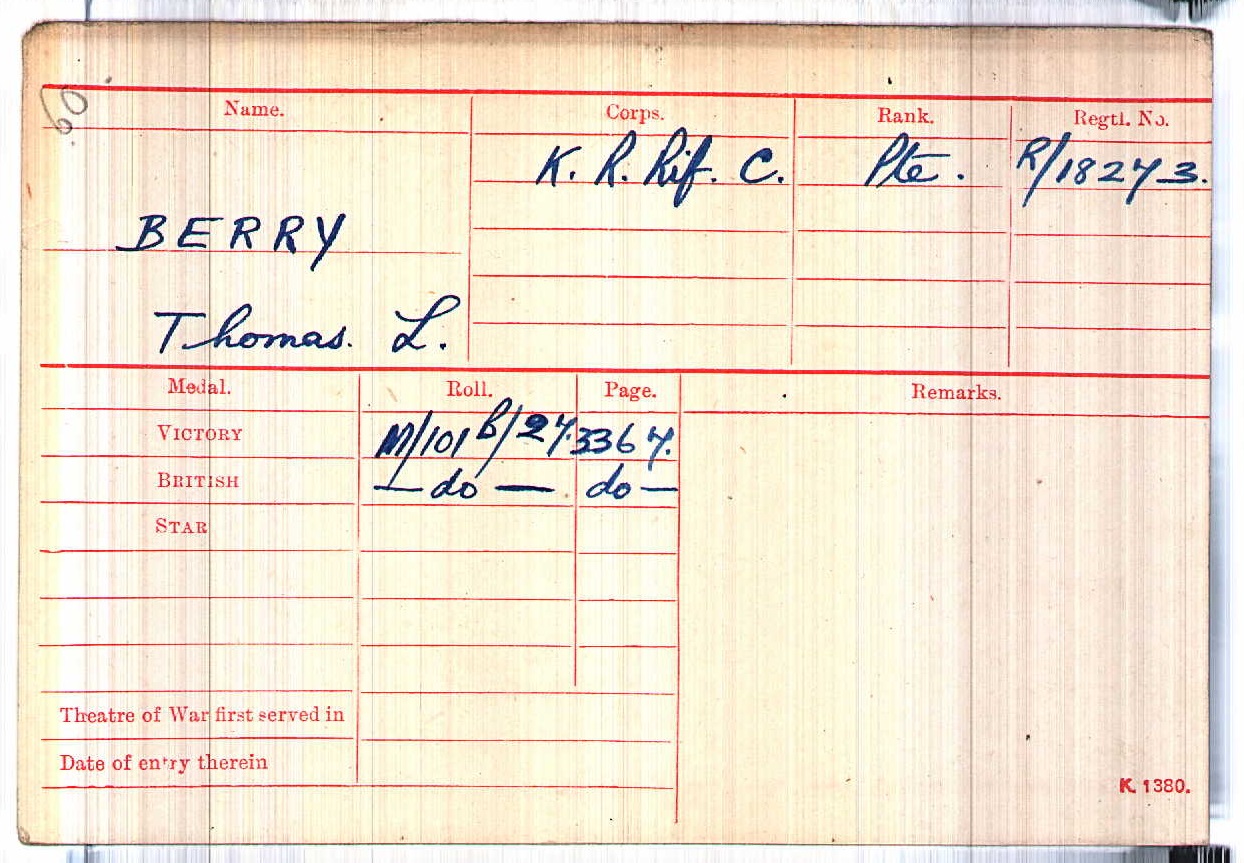 60
Name. Corps. Rank. Regtl. No.
K. R. Rif. C. Pte. R/18273.
BERRY
Thomas. L.
Medal. Roll. Page. Remarks.
VICTORY M/101B/27. 3367.
BRITISH — do — do —
STAR
Theatre of War first served in
Date of entry therein
K. 1380.